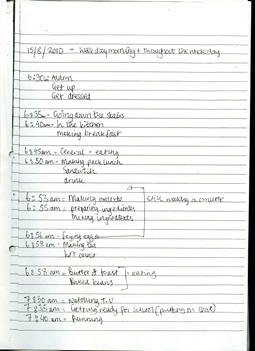 15/8/2010 - Weekday morning + throughout the whole day
6:30am Alarm
Get up
Get dressed
6:35am - Going down the stairs
6:40am - In the kitchen
making breakfast
6:45am - Cereal - eating
6:50am - Making pack lunch
Sandwich
drink
6:53am - Making omlette
6:55am - preparing ingredients
Mixing ingredients
Still making a omlette
6:56am - frying egg
6:58am - Making tea
hot
6:58am - butter & toast - eating
Baked beans
7:30am - Watching T.V
7:35am - Getting ready for school (putting on coat)
7:40am - Running